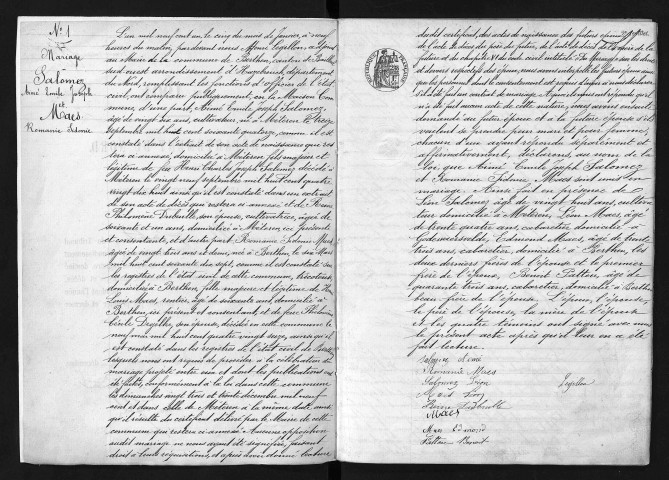 N° 1
Mariage
Salomez
Aimé Emile Joseph
et
Maes
Romanie Sidonie
L'an mil neuf cent un, le cinq du mois de Janvier, à neuf
heures du matin, par devant nous, Henri Legillon, adjoint
au Maire de la commune de Berthen, canton de Bailleul
sud ouest arrondissement d'Hazebrouck, département
du Nord, remplissant les fonctions d'officier de l'état
civil, ont comparu publiquement en la Maison Com
mune, d'une part, Aimé Emile Joseph Salomez,
âgé de vingt six ans, cultivateur, né à Méteren le treize
septembre mil huit cent soixante quatorze, comme il est
constaté dans l'extrait de son acte de naissance que res
tera ci annexé, domicilié à Méteren fils majeur et
légitime de feu Henri Charles Joseph Salomez décédé à
Méteren le vingt neuf septembre mil huit cent quatre
vingt dix huit ainsi qu'il est constaté dans un extrait
de son acte de décès qui restera ci annexé et de Reine
Philomène Debuille, son épouse, cultivatrice, âgée de
soixante et un ans, domiciliée à Méteren ici présente
et consentante, et d'autre part, Romanie Sidonie Maes
âgée de vingt trois ans et demi, née à Berthen, le six Mai
mil huit cent soixante dix sept, comme il est constaté sur
les registres de l'état civil de cette commune, tricoteuse
domiciliée à Berthen, fille majeure et légitime de
Louis Maes, rentier, âgé de soixante ans, domicilié à
Berthen, ici présent et consentant et de feue Philomène
Cécile Dezitter, son épouse, décédée en cette commune le
neuf mai mil huit cent quatre vingt onze, ainsi qu'il
est constaté dans les registres de l'état civil de Berthen
lesquels nous ont requis de procéder à la célébration du
mariage projeté entre eux et dont les publications ont
été faites, conformément à la loi dans cette commune
les dimanches vingt trois et trente décembre mil neuf
cent et dans celle de Méteren à la même date, ainsi
qu'il résulte du certificat délivré par le Maire de cette
commune qui restera ci annexé. Aucune opposition
audit mariage ne nous ayant été signifiée, faisant
droit à leurs réquisitions, et après avoir donné lecture
dudit certificat, des actes de naissance des futurs époux,
de l'acte de décès du père du futur, de l'acte de décès de la mère de la
future et du chapitre VI du code civil intitulé Du Mariage sur les droits
et devoirs respectifs des époux, nous avons interpellé les futurs époux ainsi
que les
s'il a été fait un contrat de mariage. Ayant répondu qu'il
n'a été fait aucun acte de cette nature, nous avons ensuite
demandé au futur époux et à la future épouse s'ils
veulent se prendre pour mari et pour femme,
chacun d'eux ayant répondu séparément et
affirmativement, déclarons, au nom de la
loi que Aimé Emile Joseph Salomez
et Romanie Sidonie Maes sont unis en
mariage. Ainsi fait en présence de
Léon Salomez âgé de vingt huit ans, cultiva
teur domicilié à Méteren, Léon Maes, âgé
de trente quatre ans, cabaretier domicilié à
Godewaersvelde, Edmond Maes, âgé de trente
trois ans, cabaretier, domicilié à Berthen, les
deux derniers frères de l'épouse et le premier
frère de l'époux, Benoît Pattou, âgé de
quarante trois ans, cabaretier, domicilié à Berthen
beau frère de l'épouse. L'époux, l'épouse,
le père de l'épouse, la mère de l'époux
et les quatre témoins ont signé avec nous
le présent acte après qu'il leur en a été
fait lecture.
Salomez Aimé
Romanie Maes
Salomez Léon
Legillon
Maes Léon
Reine Debuille
Maes
Maes Edmond
Pattou Benoit